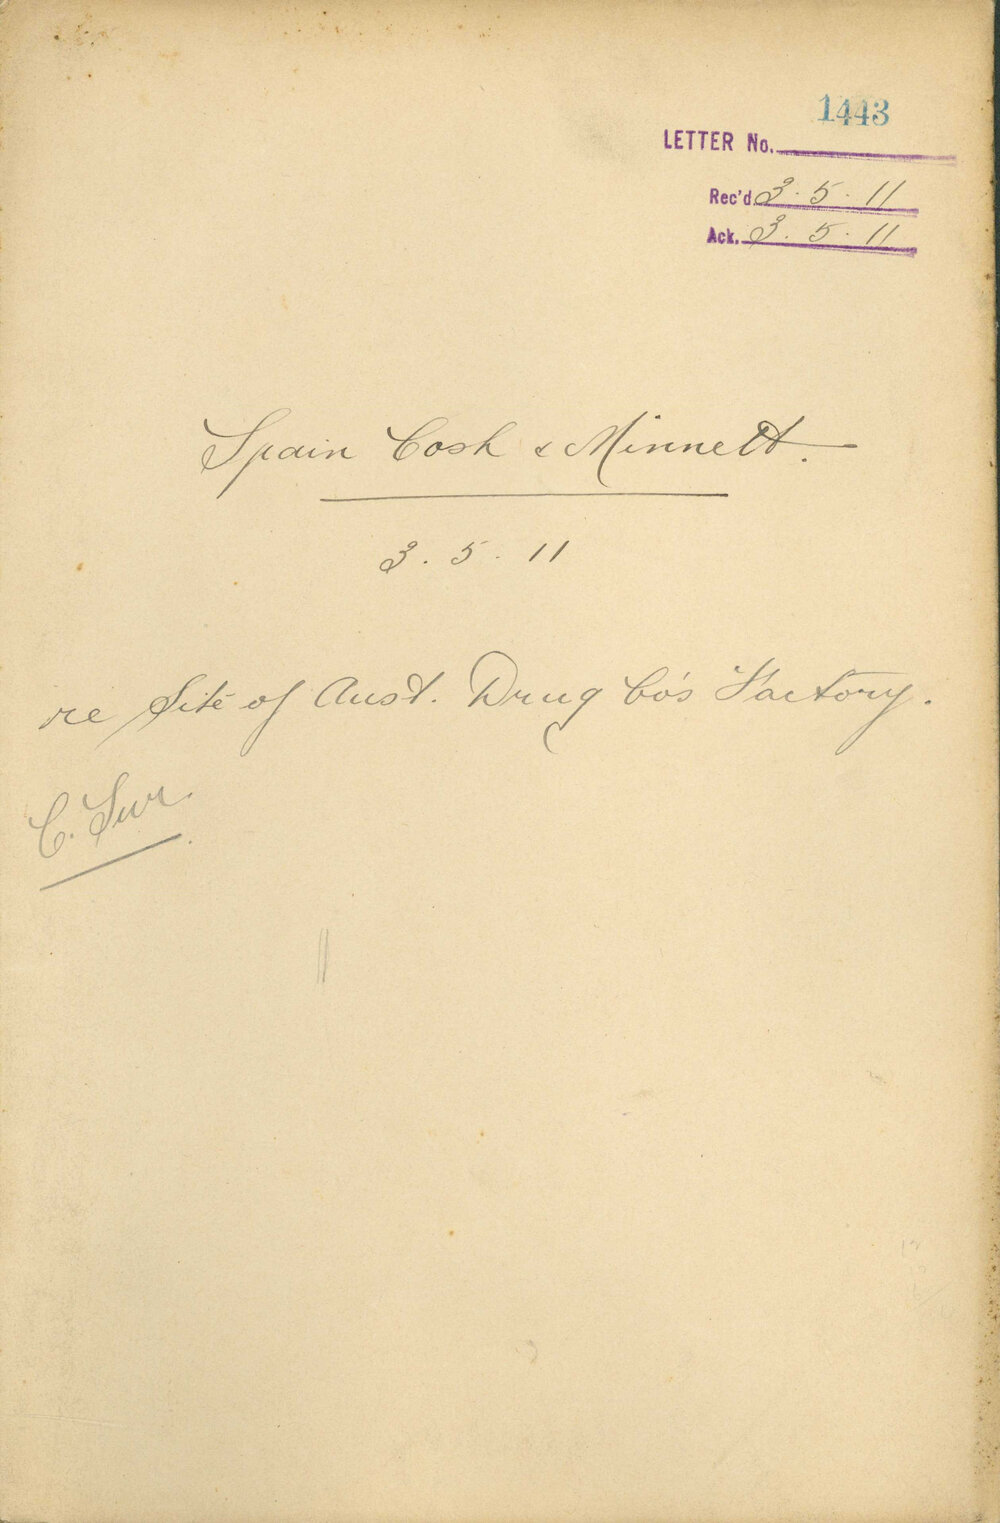 1443
LETTER No.
Rec'd 3.5.11
Ack. 3.5.11
Spain Cosh & Minnett.
3.5.11
re Site of Aust. Drug Co's Factory.
C. Sur.